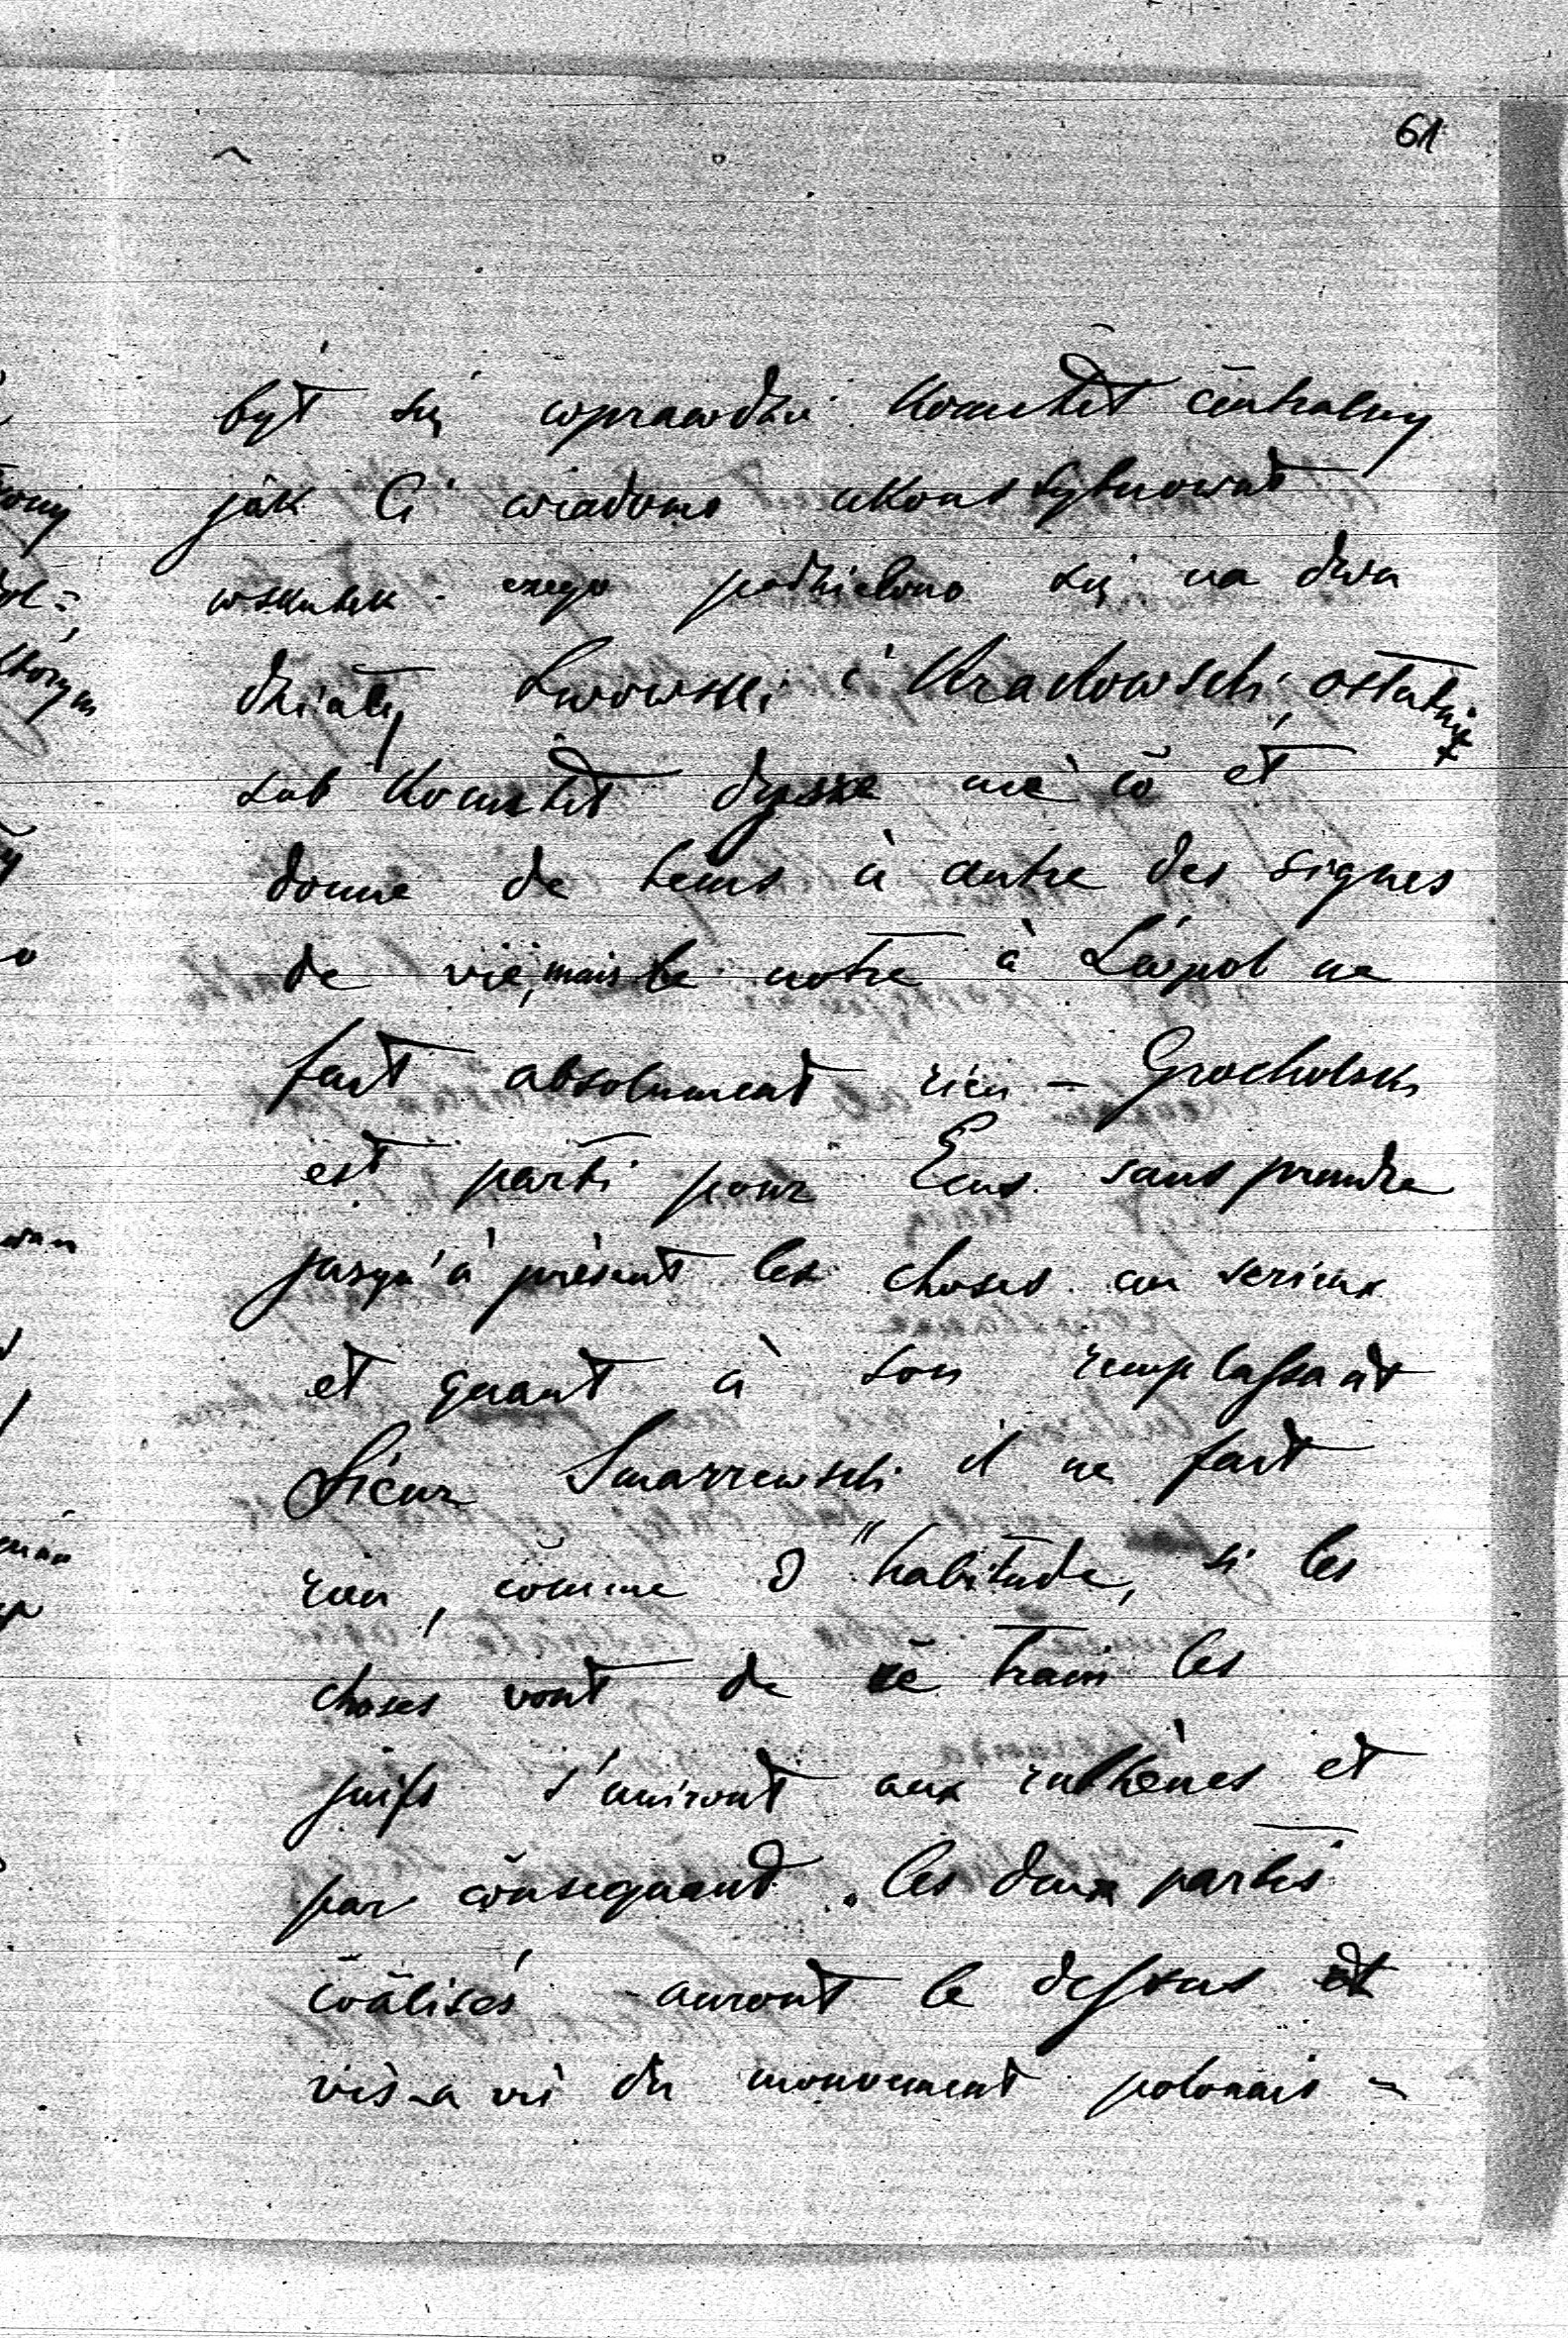 61
był się wprawdzie Komitet centralny
jak Ci wiadomo ukonstytuował
wskutek czego podzielono się na dwa
działy Lwowski i Krakowski, ostatni
sub Komitet dysze nieco et
donne de tems à autre des signes
de vie, mais le notre à Léopol ne
fait absolument rien – Grocholski
est parti pour Ems sans prendre
jusqu'à présent les choses au serieux
et quant à son remplassant
Sieur Smarzewski il ne fait
rien, comme d'habitude, si les
choses vont de ce train les
juifs s'uniront aux ruthènes et
par consequand les deux partis
coalisés auront le dessus
vis-a vis du mouvement polonais –